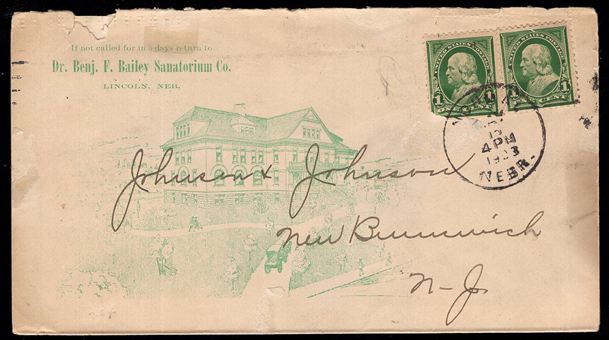 If not called for in 5 days return to
Dr. Benj. F. Bailey Sanatorium Co.
LINCOLN, NEB.
UNITED STATES POSTAGE
1 CENT 1
UNITED STATES POSTAGE
1 CENT 1
15
4 PM
1903
NEBR.
Johnson & Johnson
New Brunswick
N-J.